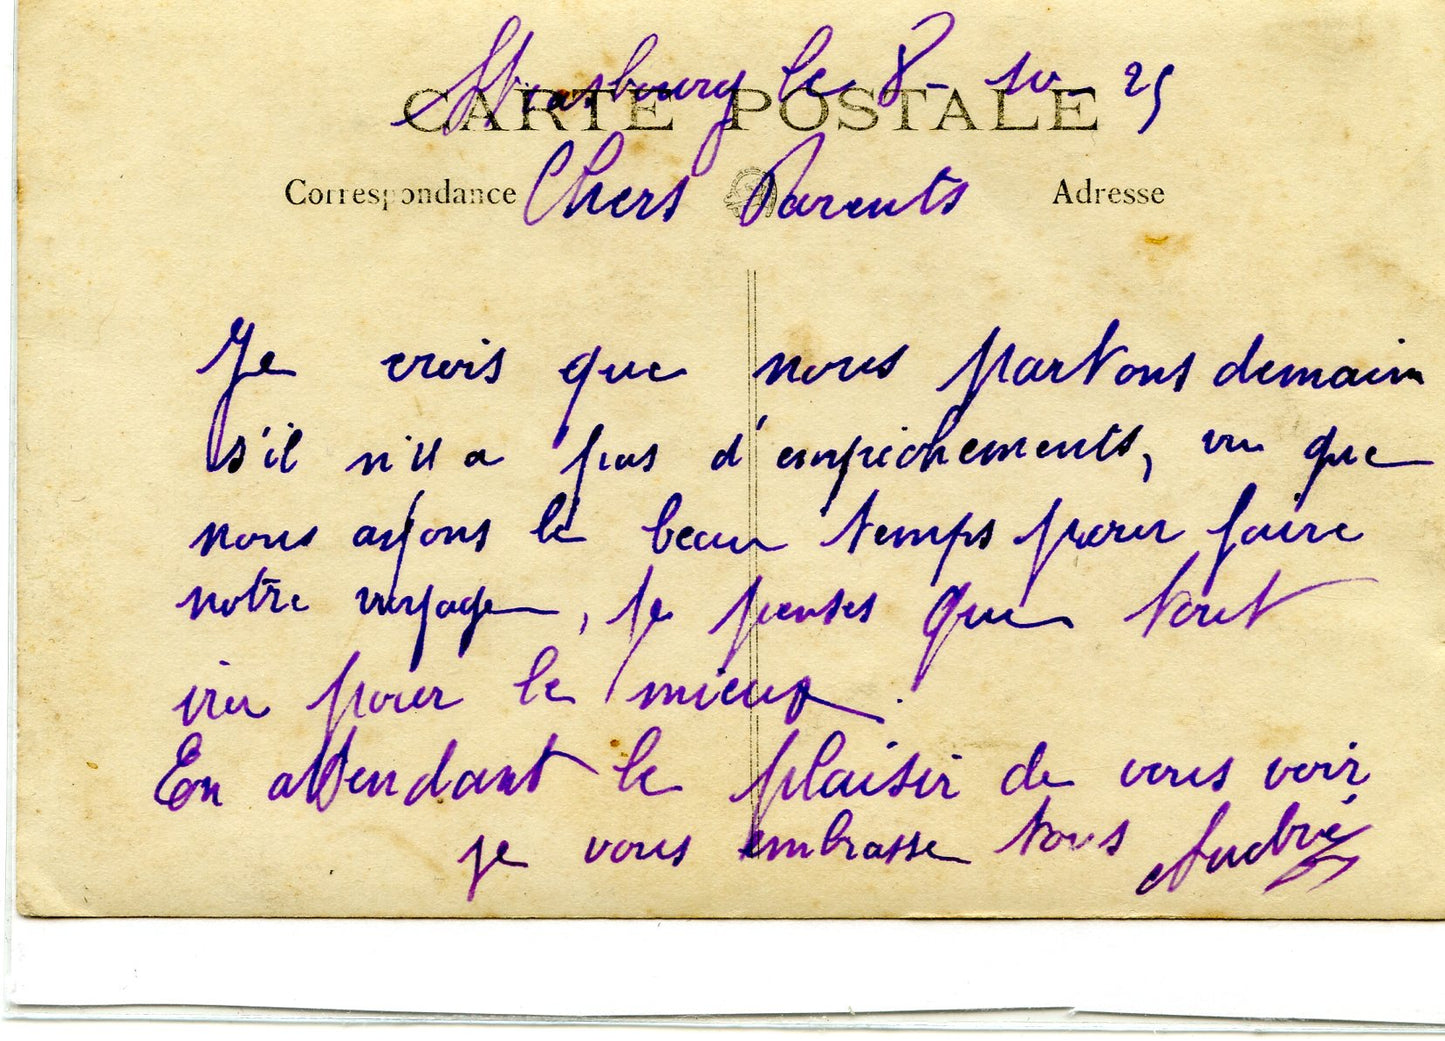 Strasbourg le 8-10-25
CARTE POSTALE
Correspondance
Chers Parents
Adresse
Je crois que nous partons demain
s'il n'y a pas d'empêchements, vu que
nous ayons le beau temps pour faire
notre voyage, je penses que tout
ira pour le mieux.
En attendant le plaisir de vous voir
je vous embrasse tous André